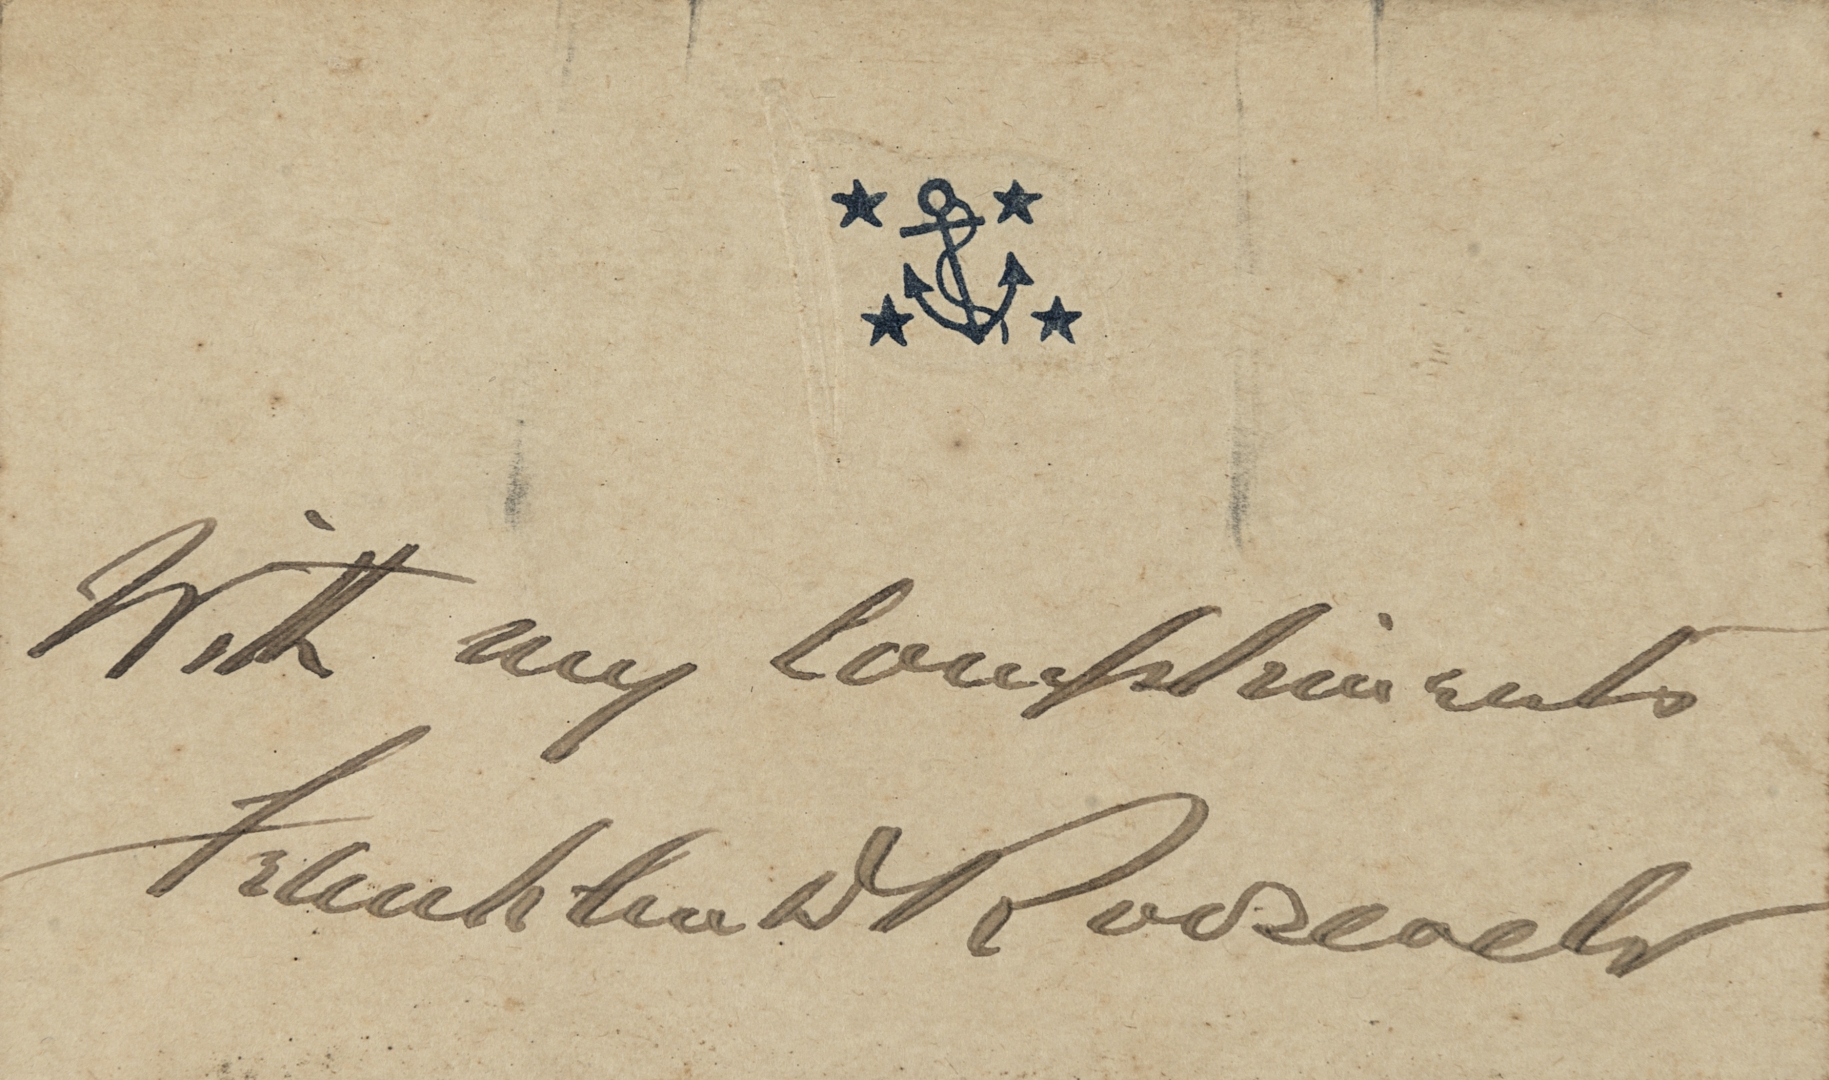 With my compliments
Franklin D Roosevelt